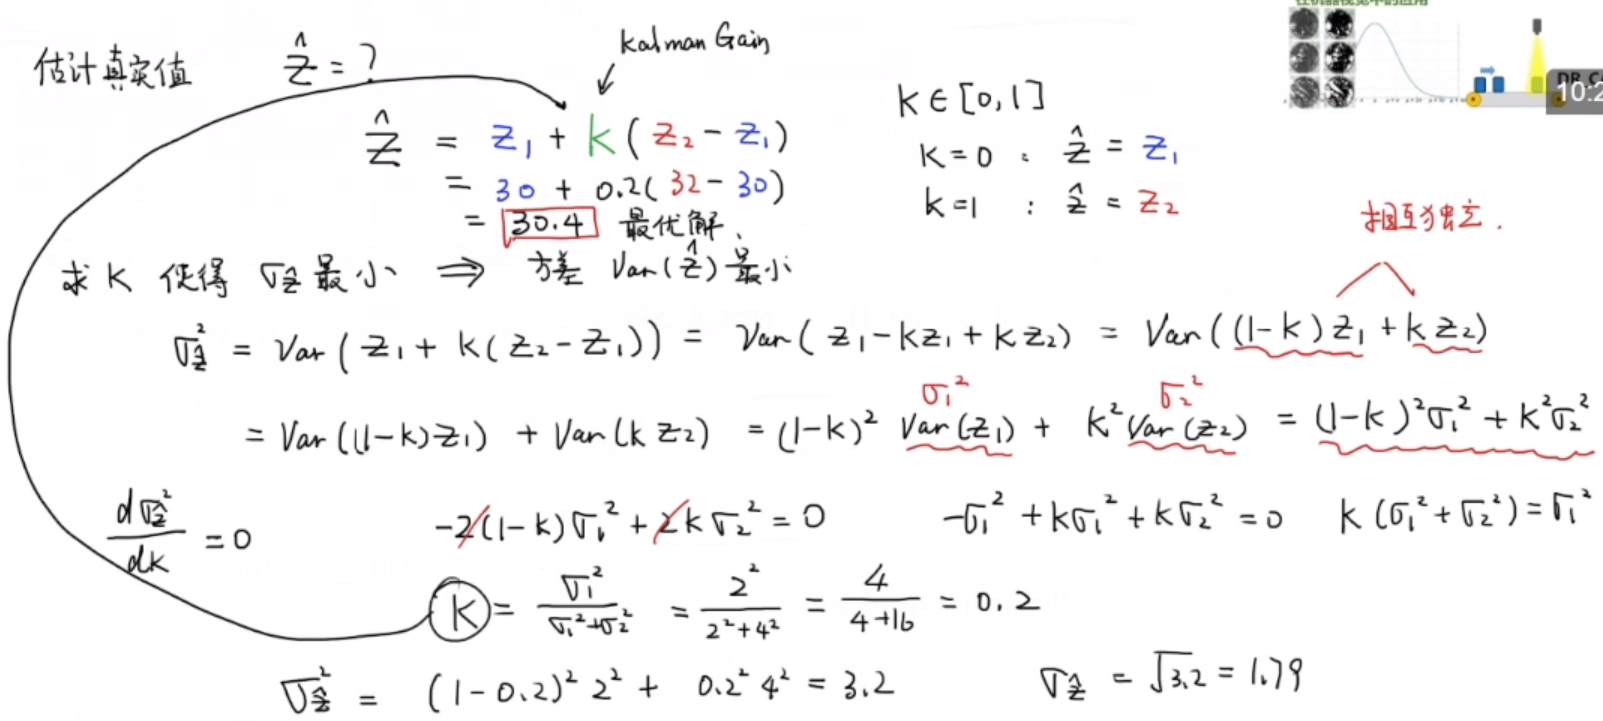 Kalman Gain
估计真实值 ẑ = ?
ẑ = z₁ + k ( z₂ - z₁ )
= 30 + 0.2( 32 - 30 )
= 30.4 最优解.
k ∈ [0,1]
k = 0 : ẑ = z₁
k = 1 : ẑ = z₂
10:2
相互独立.
求 k 使得 σẑ 最小 ⇒ 方差 Var(ẑ) 最小
σẑ² = Var( z₁ + k( z₂ - z₁ )) = Var( z₁ - kz₁ + kz₂ ) = Var( (1-k) z₁ + k z₂ )
σ₁² σ₂²
= Var((1-k)z₁) + Var(k z₂) = (1-k)² Var(z₁) + k² Var(z₂) = (1-k)²σ₁² + k²σ₂²
dσẑ²/dk = 0 -2(1-k)σ₁² + 2kσ₂² = 0 -σ₁² + kσ₁² + kσ₂² = 0 k(σ₁² + σ₂²) = σ₁²
k = σ₁²/(σ₁²+σ₂²) = 2²/(2²+4²) = 4/(4+16) = 0.2
σẑ² = (1-0.2)² 2² + 0.2² 4² = 3.2 σẑ = √3.2 = 1.79